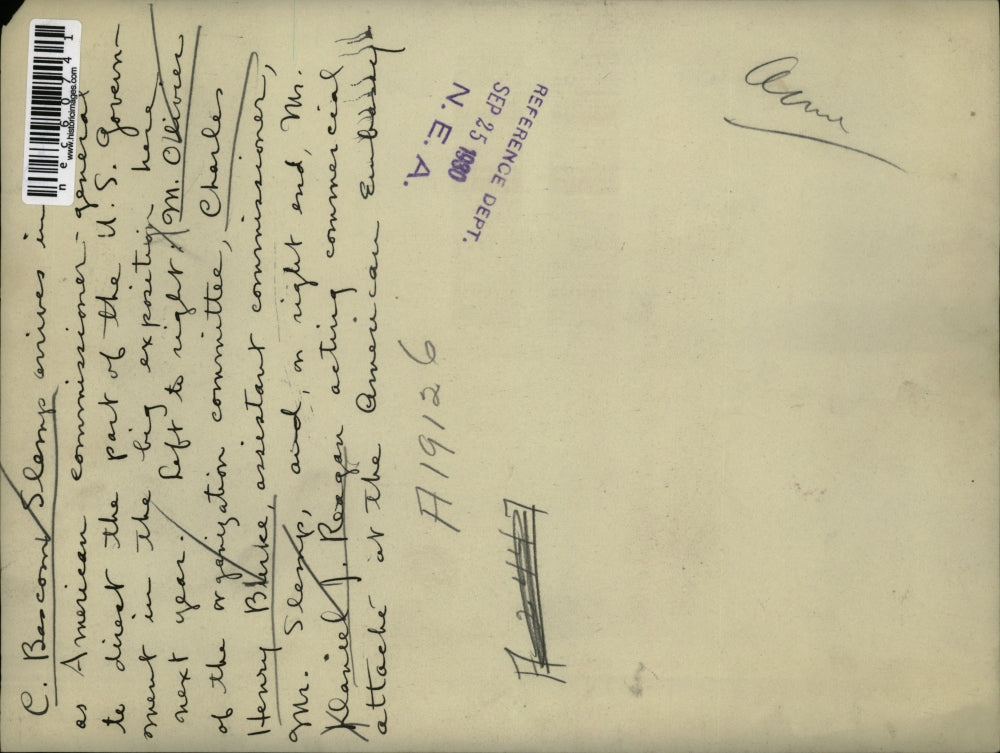 C. Bascom Slemp arrives in
as American commissioner-general
to direct the part of the U.S. Govern-
ment in the big exposition here
next year. Left to right: M. Olivier
of the organization committee, Charles
Henry Burke, assistant commissioner,
Mr. Slemp, and, on right end, Mr.
Daniel J. Reagan acting commercial
attaché at the American Embassy
REFERENCE DEPT.
SEP 25 1930
N. E. A.
A19126
Acme
www.historicimages.com